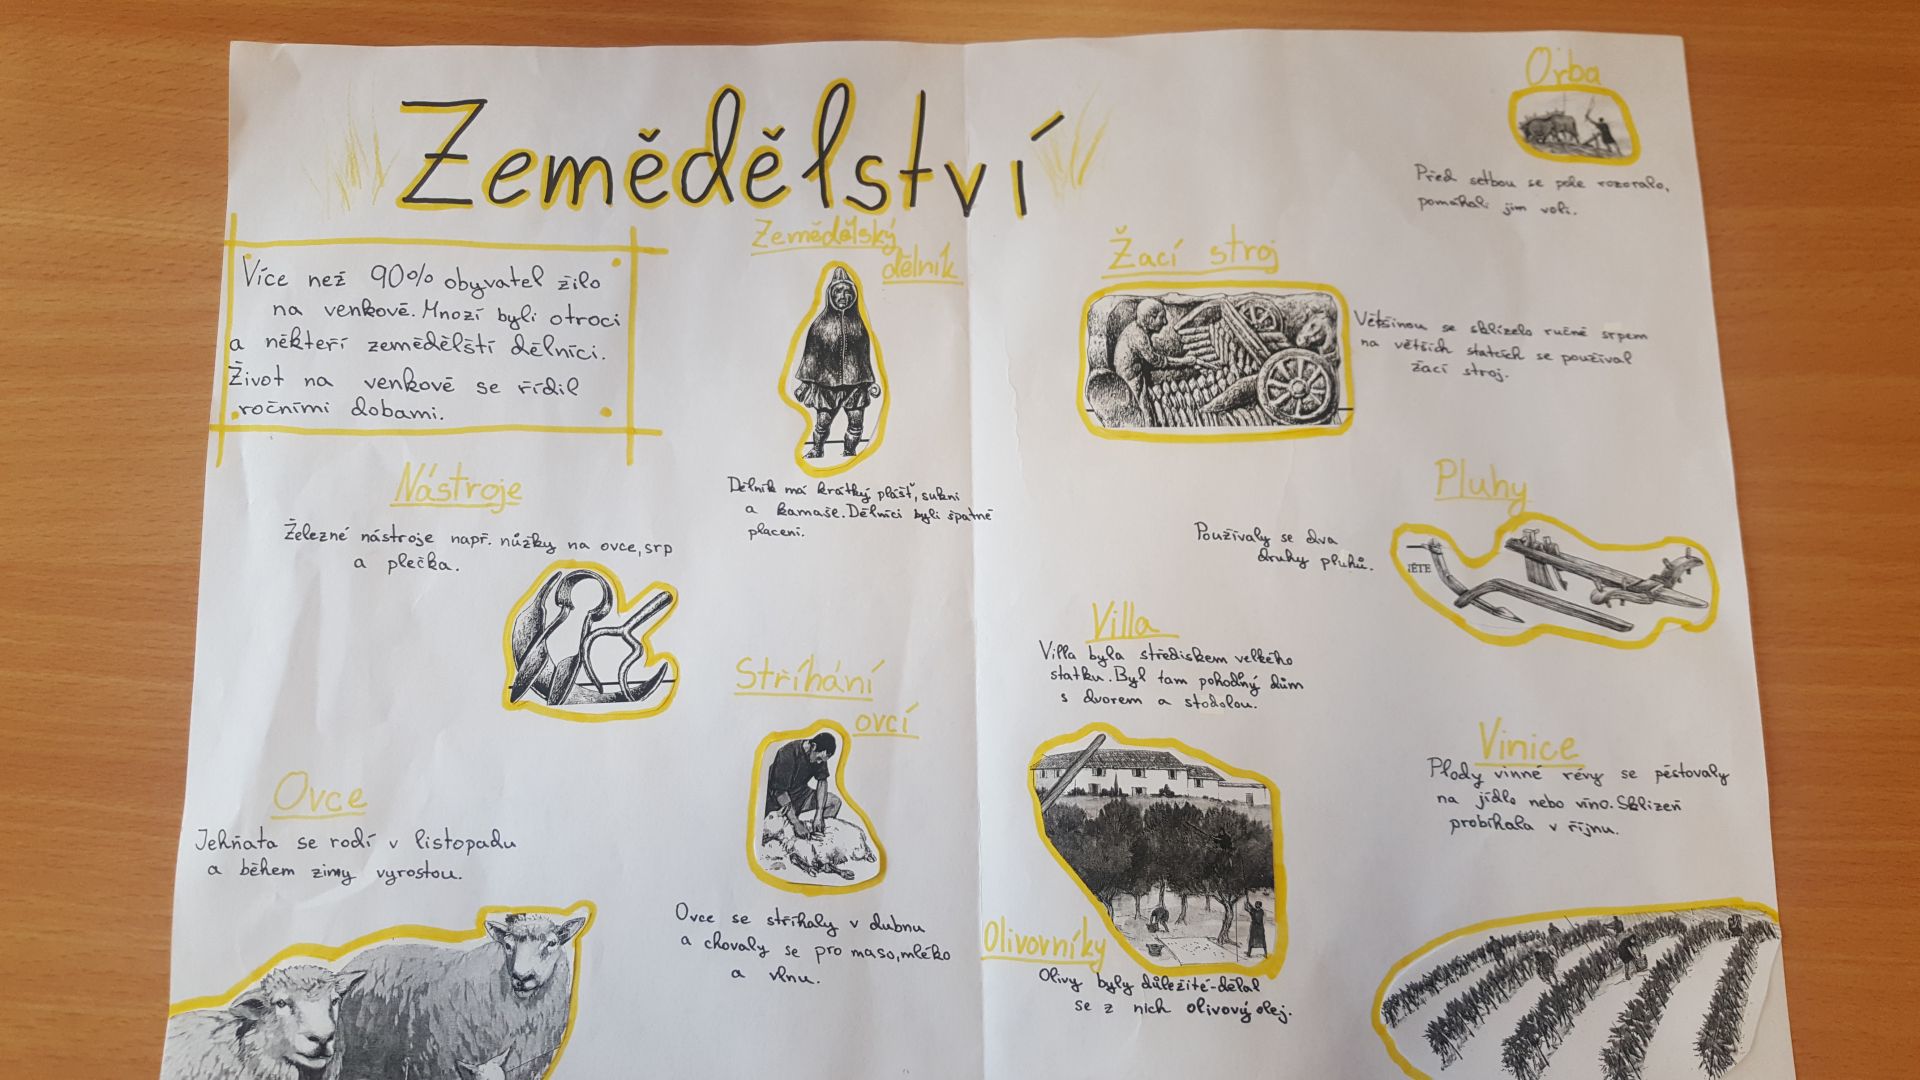 Zemědělství
Více než 90% obyvatel žilo
na venkově. Mnozí byli otroci
a někteří zemědělští dělníci.
Život na venkově se řídil
ročními dobami.
Zemědělský
dělník
Dělník má krátký plášť, sukni
a kamaše. Dělníci byli špatně
placeni.
Nástroje
Železné nástroje např. nůžky na ovce, srp
a plečka.
Stříhání
ovcí
Ovce se stříhaly v dubnu
a chovaly se pro maso, mléko
a vlnu.
Ovce
Jehňata se rodí v listopadu
a během zimy vyrostou.
Orba
Před setbou se pole rozoralo,
pomáhali jim voli.
Žací stroj
Většinou se sklízelo ručně srpem
na větších statcích se používal
žací stroj.
Pluhy
Používaly se dva
druhy pluhů.
IĚTE
Villa
Villa byla střediskem velkého
statku. Byl tam pohodlný dům
s dvorem a stodolou.
Olivovníky
Olivy byly důležité-dělal
se z nich olivový olej.
Vinice
Plody vinné révy se pěstovaly
na jídlo nebo víno. Sklizeň
probíhala v říjnu.